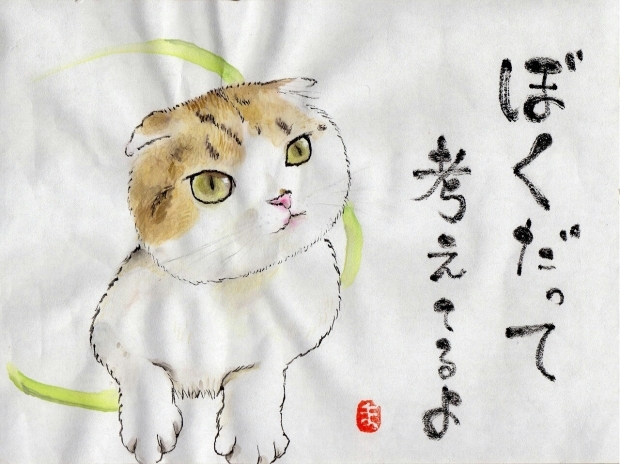 ぼくだって
考えてるよ
ま